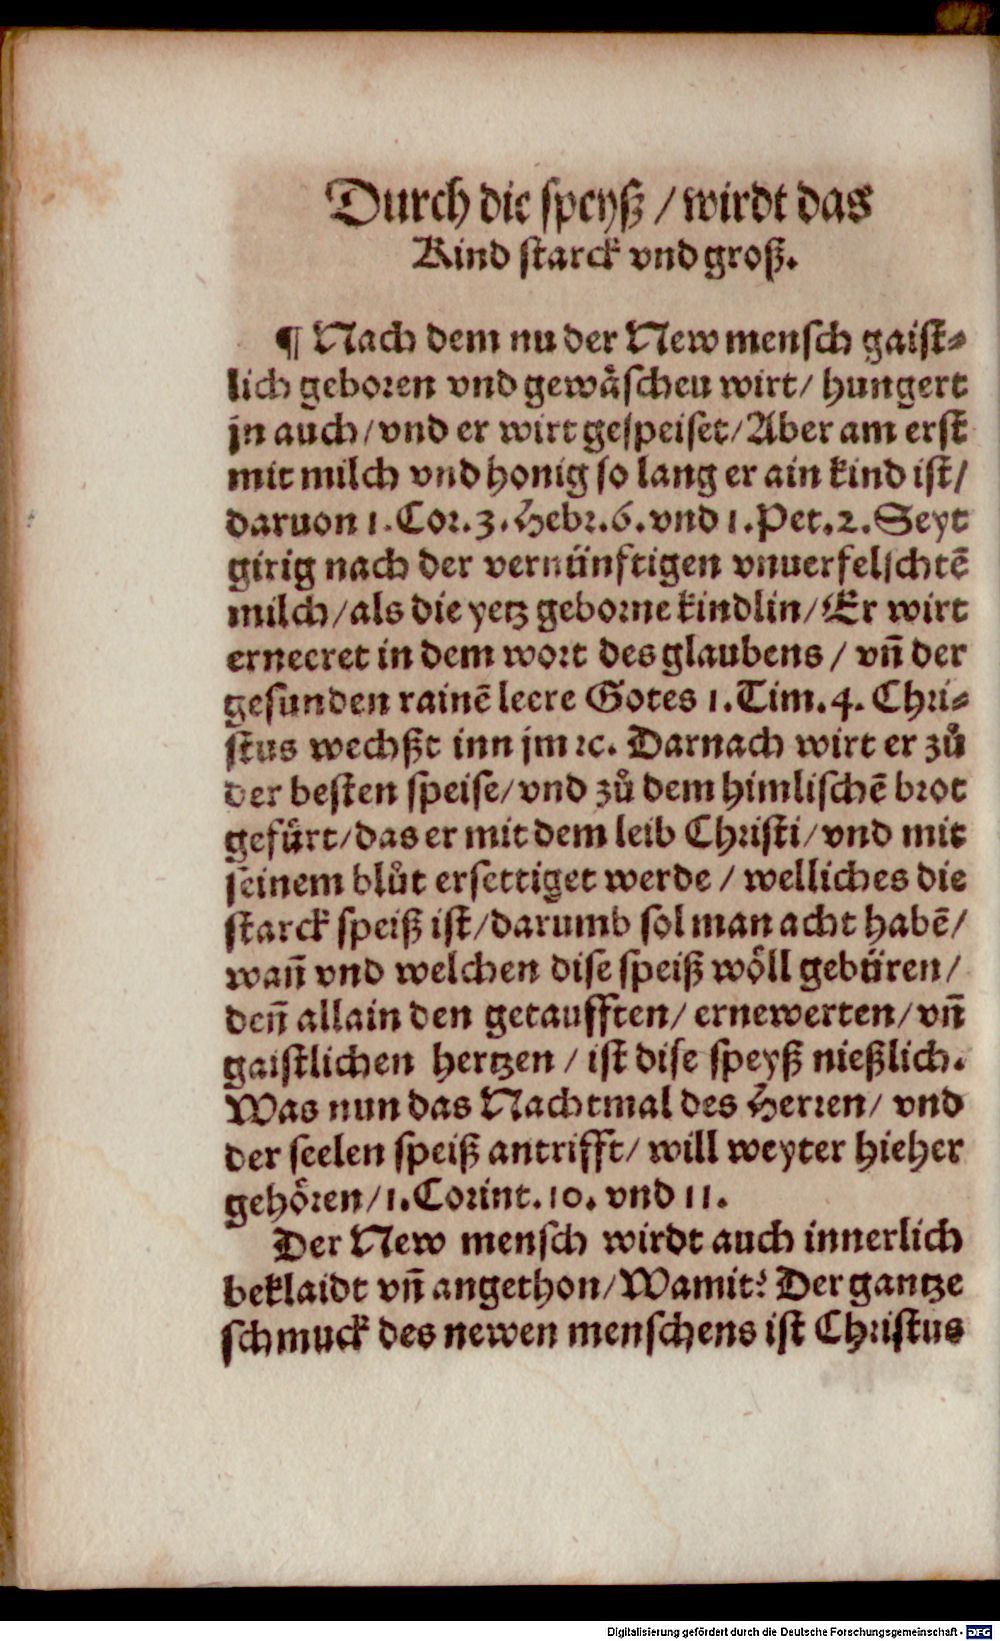 Durch die speyß / wirdt das
Kind starck vnd groß.
¶ Nach dem nu der New mensch gaist⸗
lich geboren vnd gewäschen wirt / hungert
jn auch / vnd er wirt gespeiset / Aber am erst
mit milch vnd honig so lang er ain kind ist /
daruon 1. Cor. 3. Hebr. 6. vnd 1. Pet. 2. Seyt
girig nach der vernünftigen vnuerfelschtē
milch / als die yetz geborne kindlin / Er wirt
erneeret in dem wort des glaubens / vn̄ der
gesunden rainē leere Gotes 1. Tim. 4. Chri⸗
stus wechßt inn jm ꝛc. Darnach wirt er zů
der besten speise / vnd zů dem himlischē brot
gefürt / das er mit dem leib Christi / vnd mit
seinem blůt ersettiget werde / welliches die
starck speiß ist / darumb sol man acht habē /
wan̄ vnd welchen dise speiß wöll gebüren /
den̄ allain den getaufften / ernewerten / vn̄
gaistlichen hertzen / ist dise speyß nießlich.
Was nun das Nachtmal des Herren / vnd
der seelen speiß antrifft / will weyter hieher
gehören / 1. Corint. 10. vnd 11.
Der New mensch wirdt auch innerlich
beklaidt vn̄ angethon / Wamit? Der gantze
schmuck des newen menschens ist Christus
Digitalisierung gefördert durch die Deutsche Forschungsgemeinschaft - DFG